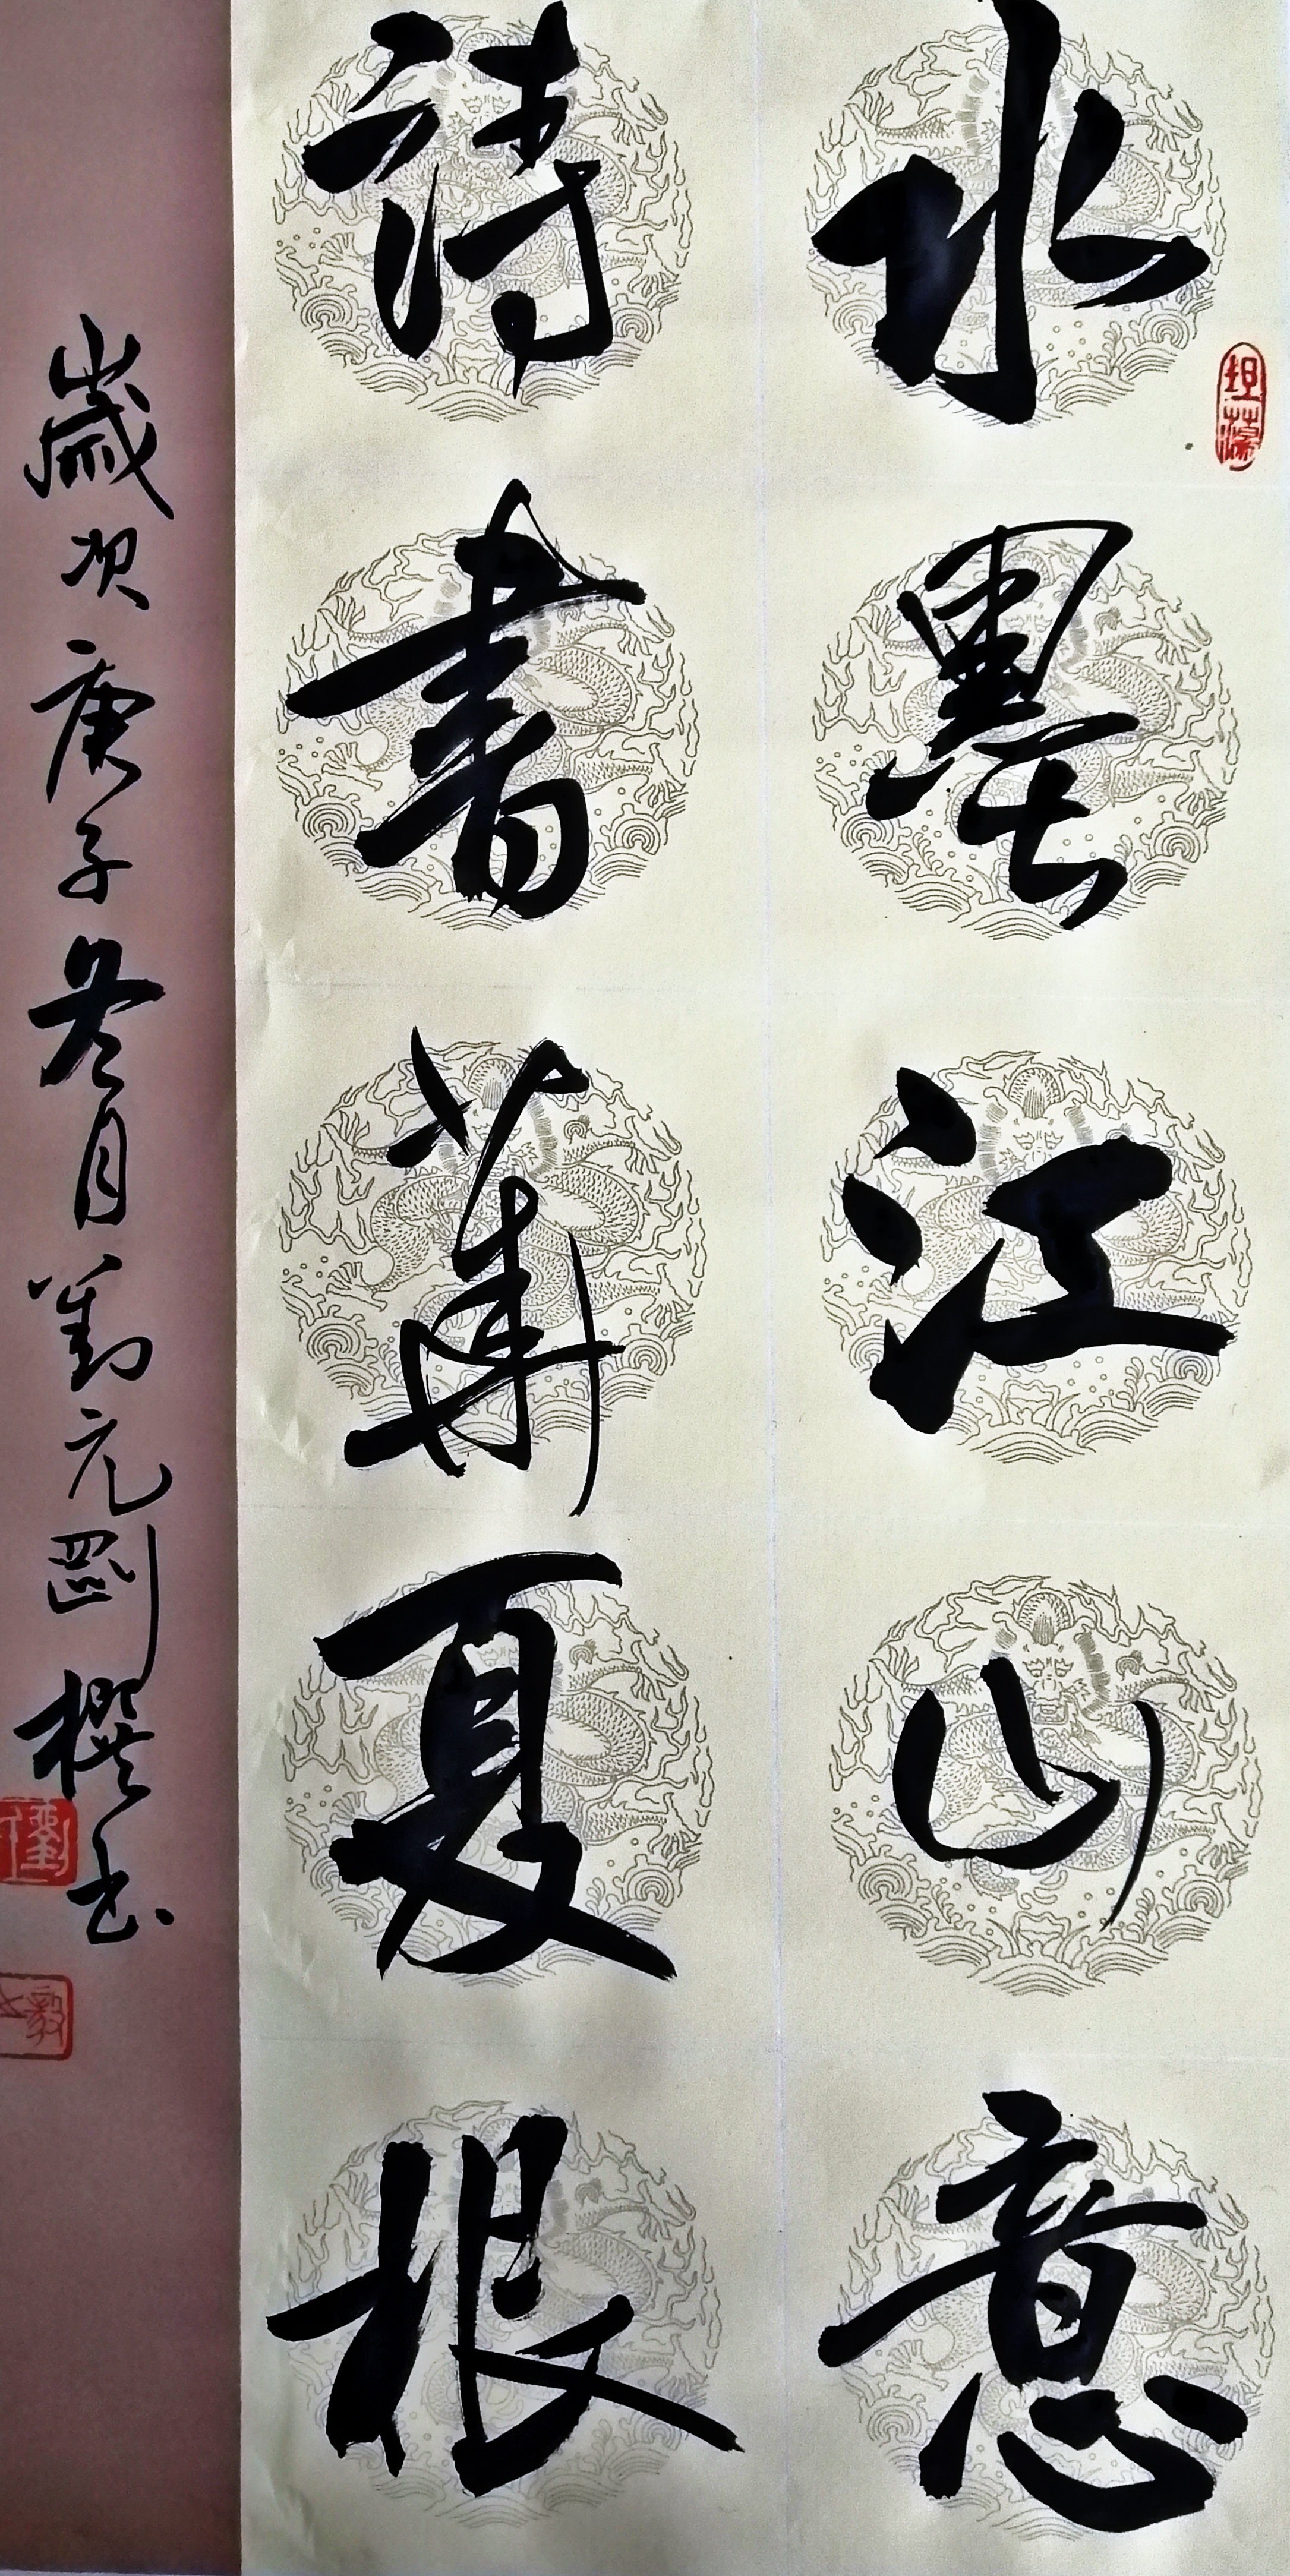 水墨江山意
詩書華夏根
歲次庚子冬月劉元剛撰书